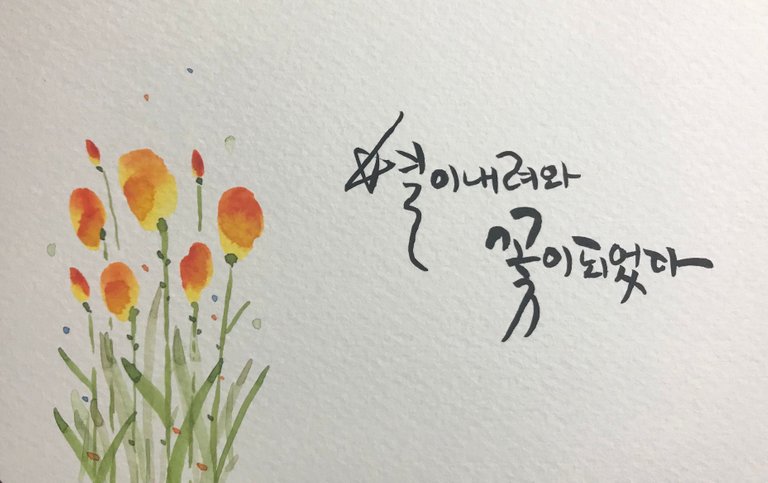 별이내려와
꽃이되었다